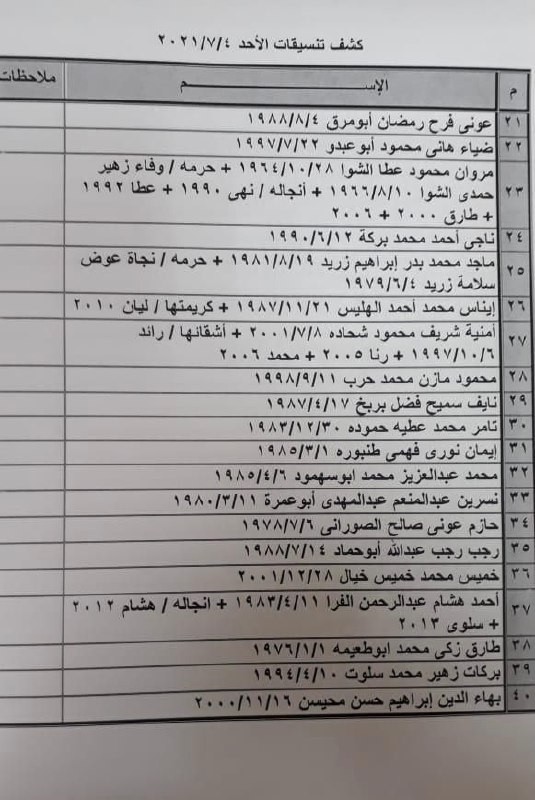 كشف تنسيقات الأحد ٢٠٢١/٧/٤
م الإســــــم ملاحظات
٢١ عونى فرح رمضان أبومرق ١٩٨٨/٨/٤
٢٢ ضياء هانى محمود أبوعبدو ١٩٩٧/٧/٢٢
مروان محمود عطا الشوا ١٩٦٤/١٠/٢٨ + حرمه / وفاء زهير
٢٣ حمدى الشوا ١٩٦٦/٨/١٠ + أنجاله / نهى ١٩٩٠ + عطا ١٩٩٢
+ طارق ٢٠٠٠ + ٢٠٠٦
٢٤ ناجى أحمد محمد بركة ١٩٩٠/٦/١٢
٢٥ ماجد محمد بدر إبراهيم زريد ١٩٨١/٨/١٩ + حرمه / نجاة عوض
سلامة زريد ١٩٧٩/٦/٤
٢٦ إيناس محمد أحمد الهليس ١٩٨٧/١١/٢١ + كريمتها / ليان ٢٠١٠
٢٧ أمنية شريف محمود شحاده ٢٠٠١/٧/٨ + أشقائها / رائد
١٩٩٧/١٠/٦ + رنا ٢٠٠٥ + محمد ٢٠٠٦
٢٨ محمود مازن محمد حرب ١٩٩٨/٩/١١
٢٩ نايف سميح فضل بربخ ١٩٨٧/٤/١٧
٣٠ تامر محمد عطيه حموده ١٩٨٣/١٢/٣٠
٣١ إيمان نورى فهمى طنبوره ١٩٨٥/٣/١
٣٢ محمد عبدالعزيز محمد ابوسهمود ١٩٨٥/٤/٦
٣٣ نسرين عبدالمنعم عبدالمهدى أبوعمرة ١٩٨٠/٣/١١
٣٤ حازم عونى صالح الصورانى ١٩٧٨/٧/٦
٣٥ رجب رجب عبدالله أبوحماد ١٩٨٨/٧/١٤
٣٦ خميس محمد خميس خيال ٢٠٠١/١٢/٢٨
٣٧ أحمد هشام عبدالرحمن الفرا ١٩٨٣/٤/١١ + انجاله / هشام ٢٠١٢
+ سلوى ٢٠١٣
٣٨ طارق زكى محمد ابوطعيمه ١٩٧٦/١/١
٣٩ بركات زهير محمد سلوت ١٩٩٤/٤/١٠
٤٠ بهاء الدين إبراهيم حسن محيسن ٢٠٠٠/١١/١٦